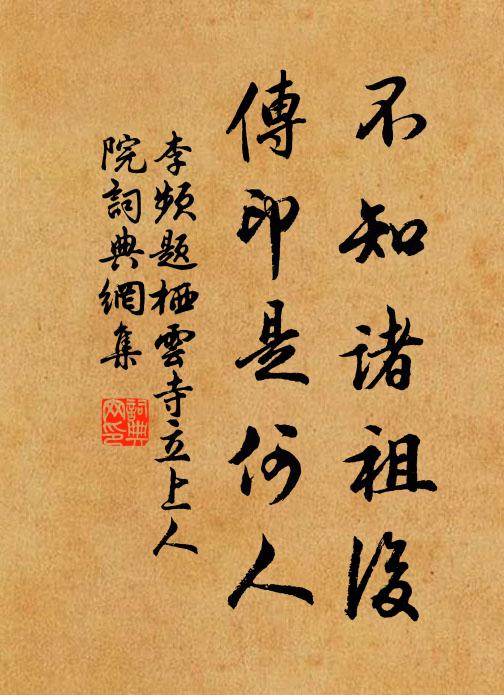 不知諸祖後
傳印是何人
李頻題栖雲寺立上人
院詞典網集
詞典網印